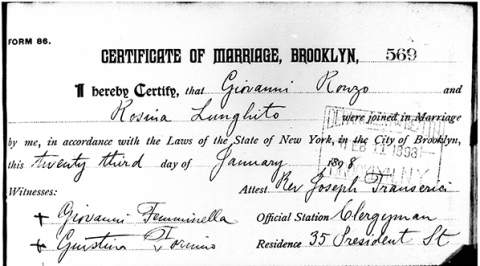 FORM 86.
CERTIFICATE OF MARRIAGE, BROOKLYN, 569
I hereby Certify, that Giovanni Ronzo and
Rosina Lunghito were joined in Marriage
by me, in accordance with the Laws of the State of New York, in the City of Brooklyn,
this twenty third day of January 1898
Witnesses: Attest Rev Joseph
+ Giovanni Femminella Official Station Clergyman
+ Residence 35 President St